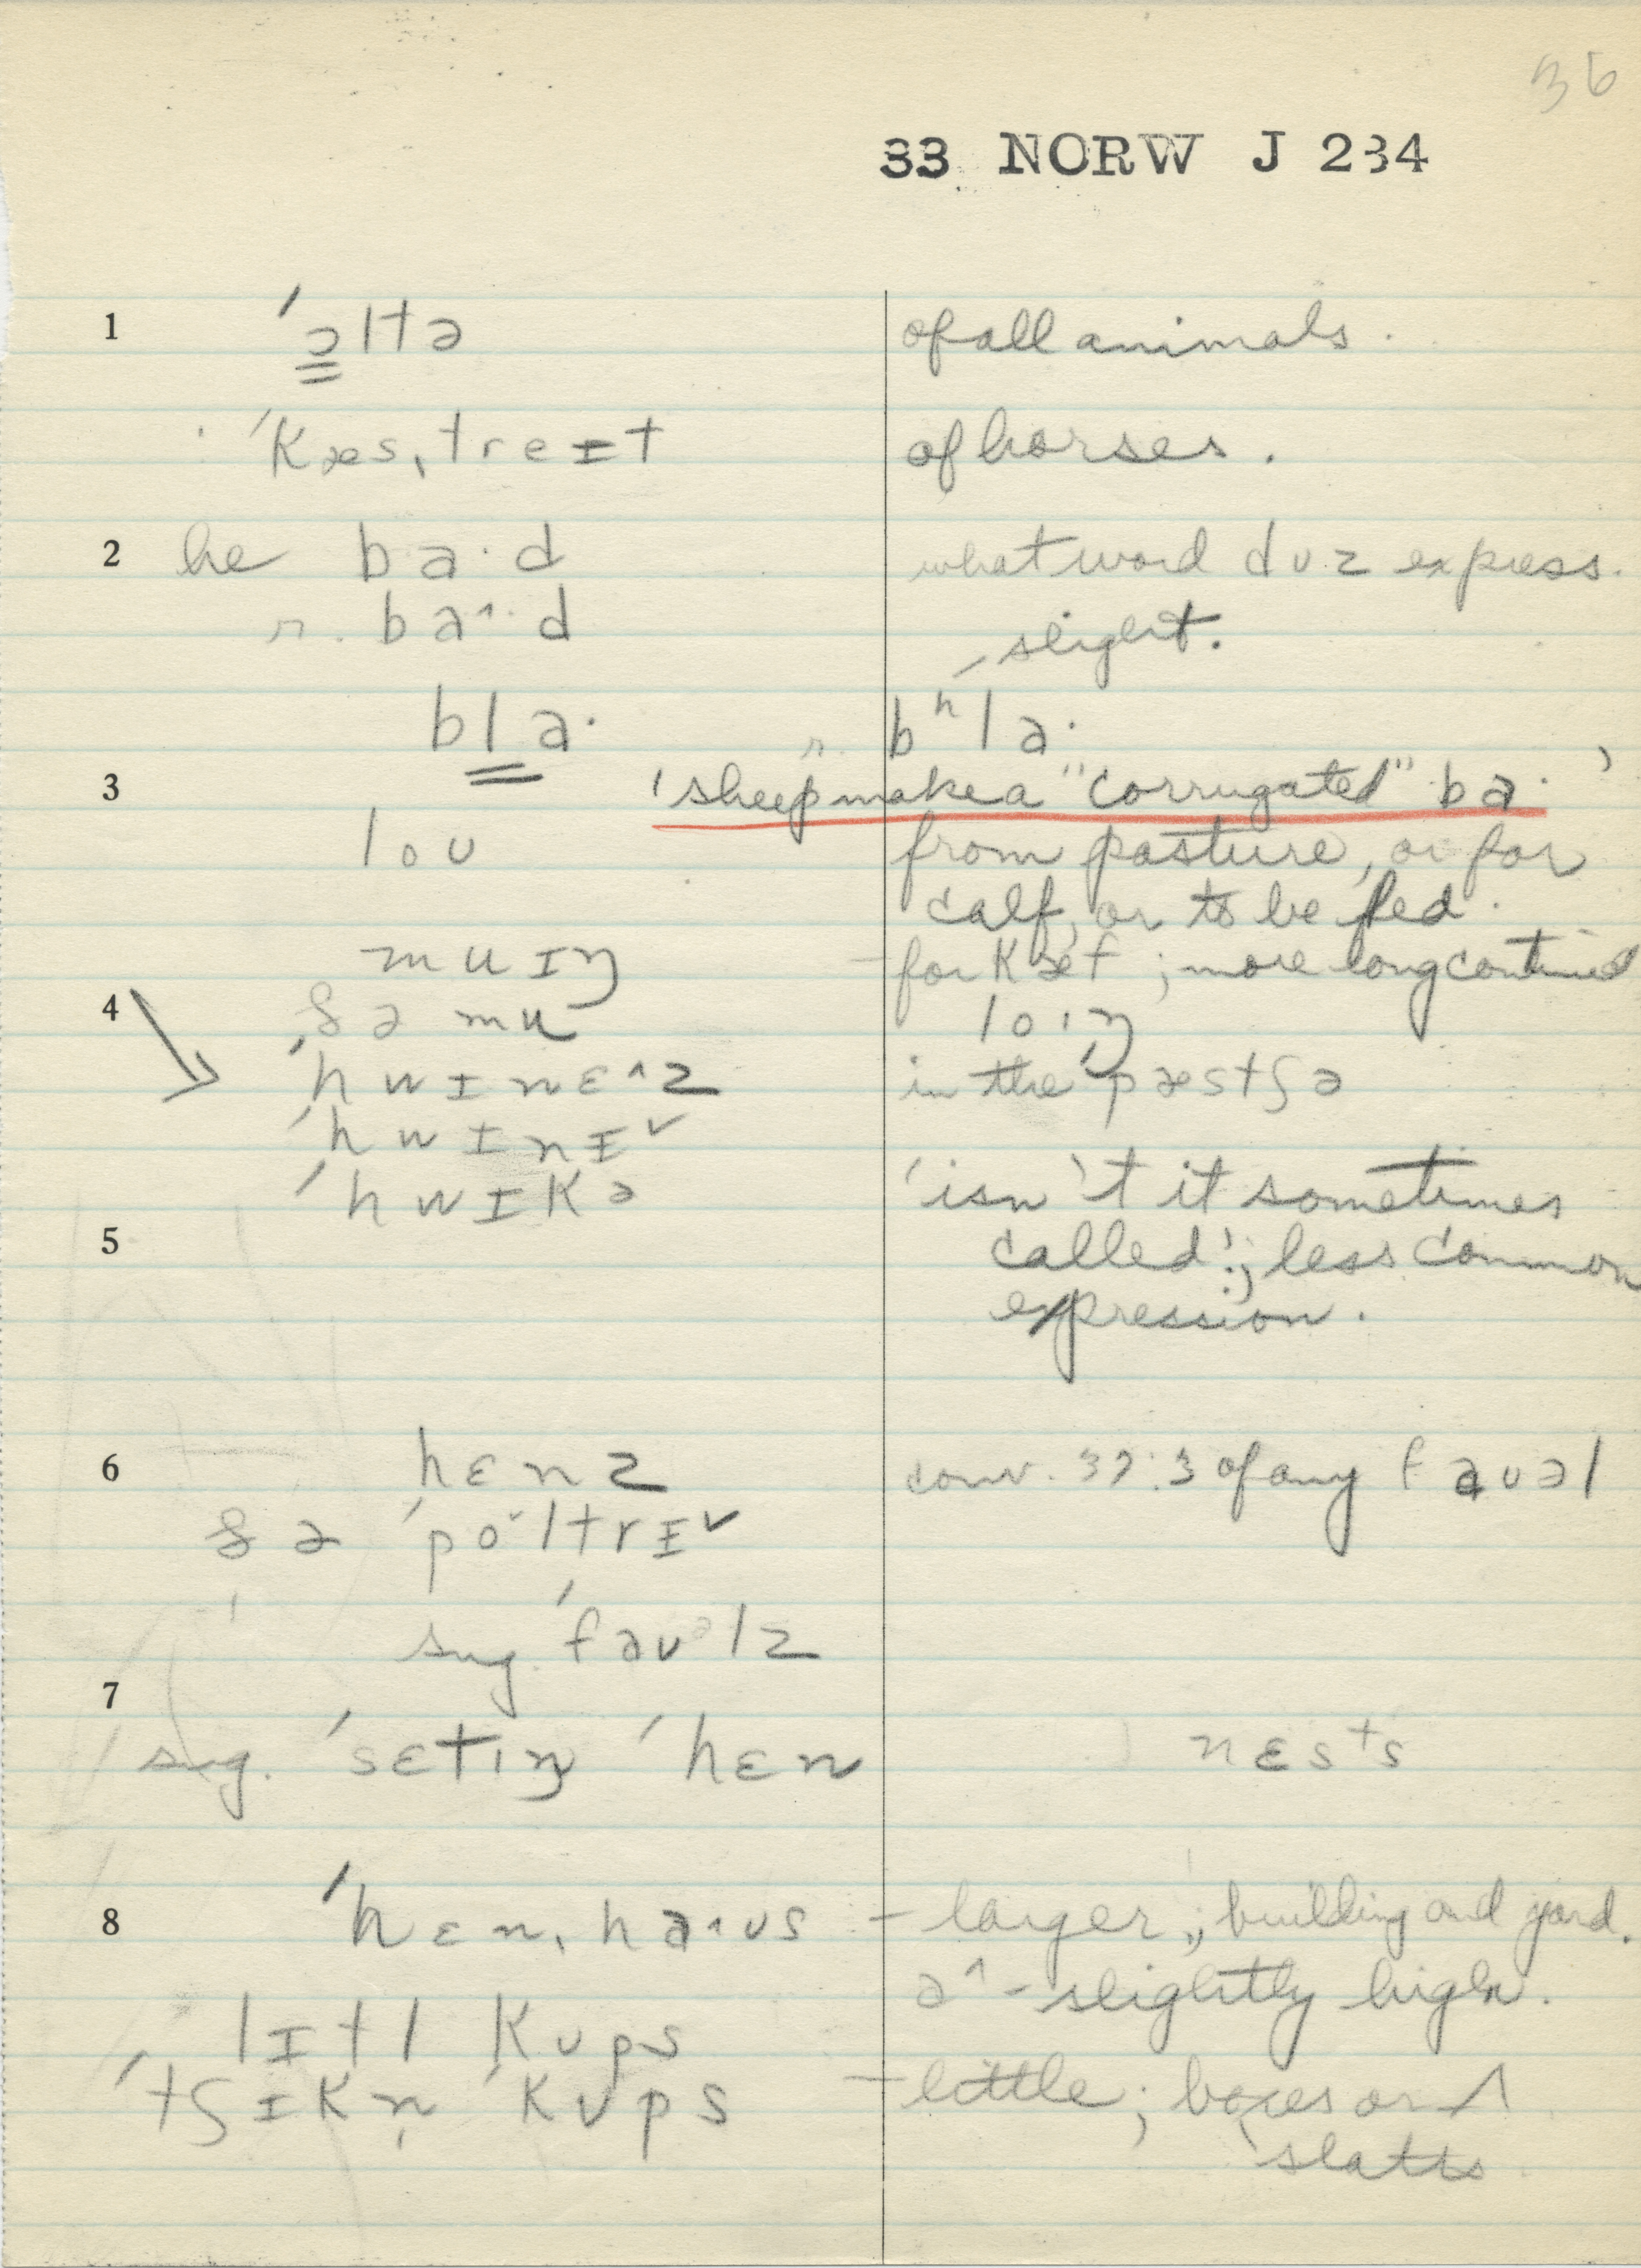 36
33 NORW J 234
1 ˈɔltə of all animals.
ˈkæsˌtreɪt of horses.
2 he ba·d what word dʊz express.
r. baˆ·d slight.
bla· r. bʰla·
3 'sheep make a "corrugated" ba·'
loʊ from pasture, or for
calf, or to be fed.
muɪŋ – for kæf; more long continued
4 ðə mu loɪŋ
ˈhwɪnɛˆz in the ˈpæstʃə
ˈhwɪnɪˇ
ˈhwɪkə 'isn't it sometimes
5 called'; less common
expression.
6 hɛnz conv. 37:3 of any faʊəl
ðə ˈpoˇltrɪˇ
sug. ˈfaʊəlz
7
sug. ˈsɛtɪŋ ˈhɛn nɛsts
8 ˈhɛnˌhaˆʊs – larger; building and yard.
aˆ - slightly higher.
lɪtl kups
ˈtʃɪkn̩ ˈkups – little; boxes or ʌ
slatts